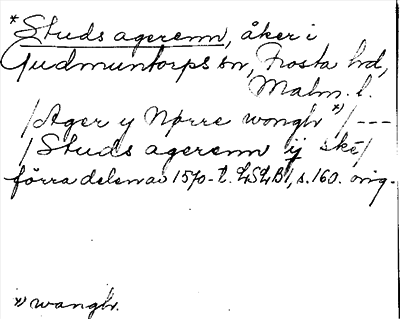 *Studs agerenn, åker i
Gudmuntorps sn, Frosta hd,
Malm. l.
/Ager y Nørre wongh *)/ ---
/Studs agerenn ij ske/
förra delen av 1570-t. LSLB1, s. 160. orig.
*) wangh.